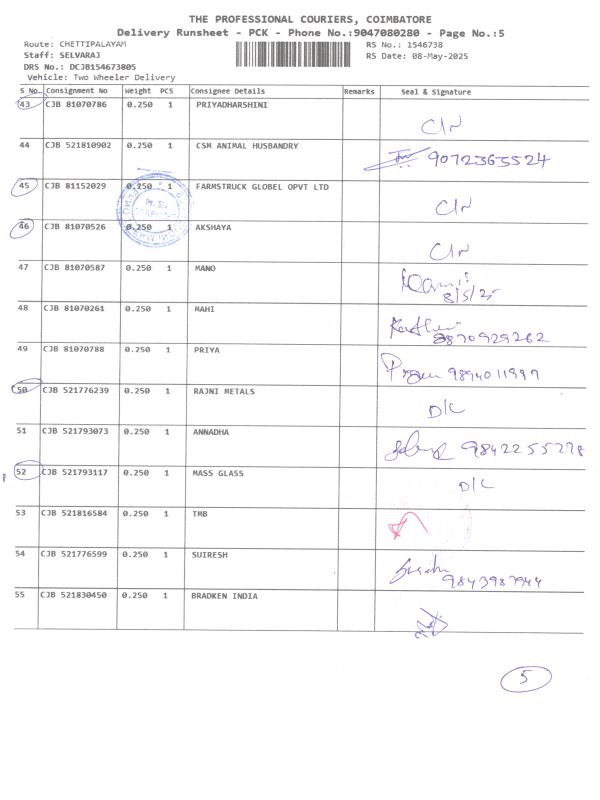 THE PROFESSIONAL COURIERS, COIMBATORE
Delivery Runsheet - PCK - Phone No.:9047080280 - Page No.:5
Route: CHETTIPALAYAM RS No.: 1546738
Staff: SELVARAJ RS Date: 08-May-2025
DRS No.: DCJB154673805
Vehicle: Two Wheeler Delivery
S No. Consignment No Weight PCS Consignee Details Remarks Seal & Signature
43 CJB 81070786 0.250 1 PRIYADHARSHINI
C/N
44 CJB 521810902 0.250 1 CSM ANIMAL HUSBANDRY
9072363524
45 CJB 81152029 0.250 1 FARMSTRUCK GLOBEL OPVT LTD
C/N
46 CJB 81070526 0.250 1 AKSHAYA
C/N
47 CJB 81070587 0.250 1 MANO
8/5/25
48 CJB 81070261 0.250 1 MAHI
8870929262
49 CJB 81070788 0.250 1 PRIYA
9894011997
50 CJB 521776239 0.250 1 RAJNI METALS
D/C
51 CJB 521793073 0.250 1 ANNADHA
9842255278
52 CJB 521793117 0.250 1 MASS GLASS
D/C
53 CJB 521816584 0.250 1 TMB
54 CJB 521776599 0.250 1 SUIRESH
9843987944
55 CJB 521830450 0.250 1 BRADKEN INDIA
5